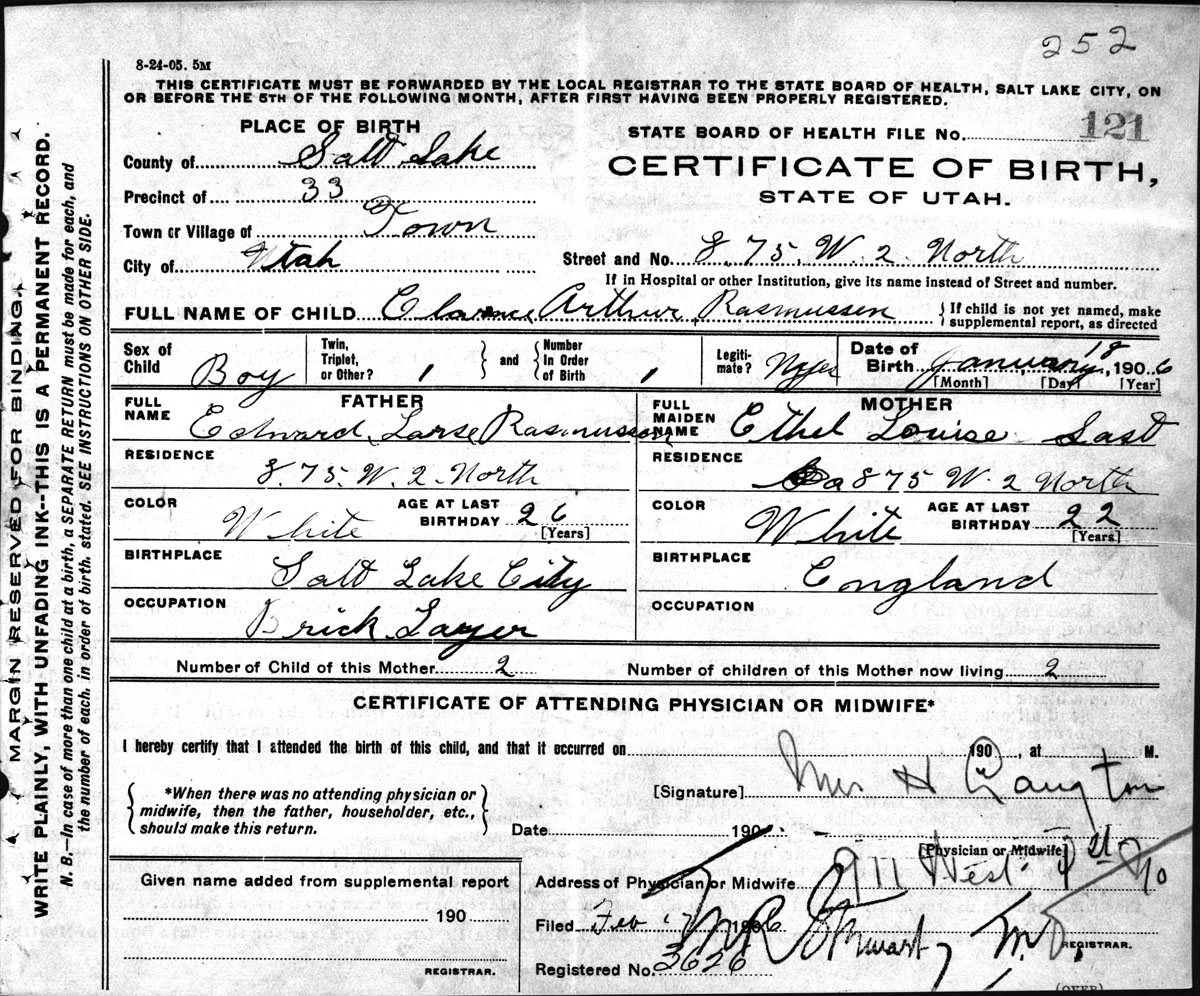 252
8-24-05. 5M
THIS CERTIFICATE MUST BE FORWARDED BY THE LOCAL REGISTRAR TO THE STATE BOARD OF HEALTH, SALT LAKE CITY, ON
OR BEFORE THE 5TH OF THE FOLLOWING MONTH, AFTER FIRST HAVING BEEN PROPERLY REGISTERED.
MARGIN RESERVED FOR BINDING.
WRITE PLAINLY, WITH UNFADING INK--THIS IS A PERMANENT RECORD.
N. B.—In case of more than one child at a birth, a SEPARATE RETURN must be made for each, and
the number of each, in order of birth, stated. SEE INSTRUCTIONS ON OTHER SIDE.
PLACE OF BIRTH
County of Salt Lake
Precinct of 33
Town or Village of Town
City of Utah
STATE BOARD OF HEALTH FILE No. 121
CERTIFICATE OF BIRTH,
STATE OF UTAH.
Street and No. 875. W. 2 North
If in Hospital or other Institution, give its name instead of Street and number.
FULL NAME OF CHILD Clarence Arthur Rasmussen
If child is not yet named, make
supplemental report, as directed
Sex of Child Boy
Twin, Triplet, or Other? 1
and
Number In Order of Birth 1
Legitimate?
Date of Birth January 18, 1906
[Month] [Day] [Year]
FATHER
FULL NAME Edward Larse Rasmussen
RESIDENCE
875. W. 2. North
COLOR White
AGE AT LAST BIRTHDAY 26
[Years]
BIRTHPLACE
Salt Lake City
OCCUPATION
Brick Layer
MOTHER
FULL MAIDEN NAME Ethel Louise Last
RESIDENCE
875 W. 2 North
COLOR White
AGE AT LAST BIRTHDAY 22
[Years]
BIRTHPLACE
England
OCCUPATION
Number of Child of this Mother 2
Number of children of this Mother now living 2
CERTIFICATE OF ATTENDING PHYSICIAN OR MIDWIFE*
I hereby certify that I attended the birth of this child, and that it occurred on 190 , at M.
*When there was no attending physician or
midwife, then the father, householder, etc.,
should make this return.
[Signature] Mrs H
Date 190
[Physician or Midwife]
Given name added from supplemental report
190
REGISTRAR.
Address of Physician or Midwife 911 West
Filed Feb 1906
REGISTRAR.
Registered No. 3626
(OVER)